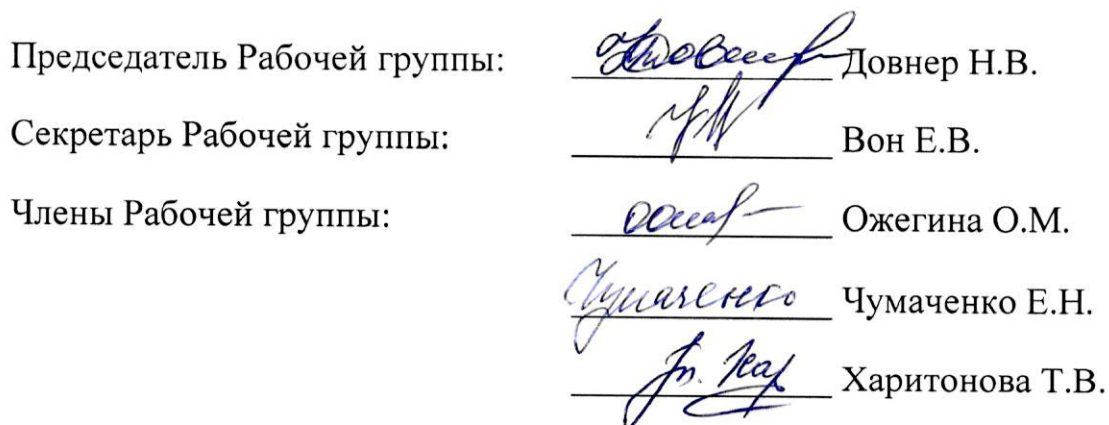 Председатель Рабочей группы: Довнер Н.В.
Секретарь Рабочей группы: Вон Е.В.
Члены Рабочей группы: Ожегина О.М.
Чумаченко Чумаченко Е.Н.
Харитонова Т.В.